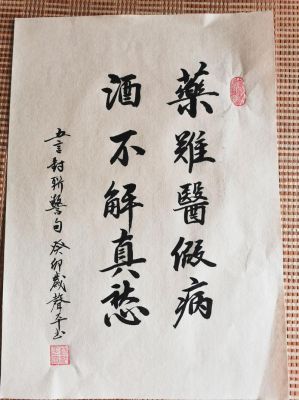 藥難醫假病
酒不解真愁
五言對聯警句癸卯歲聲平书